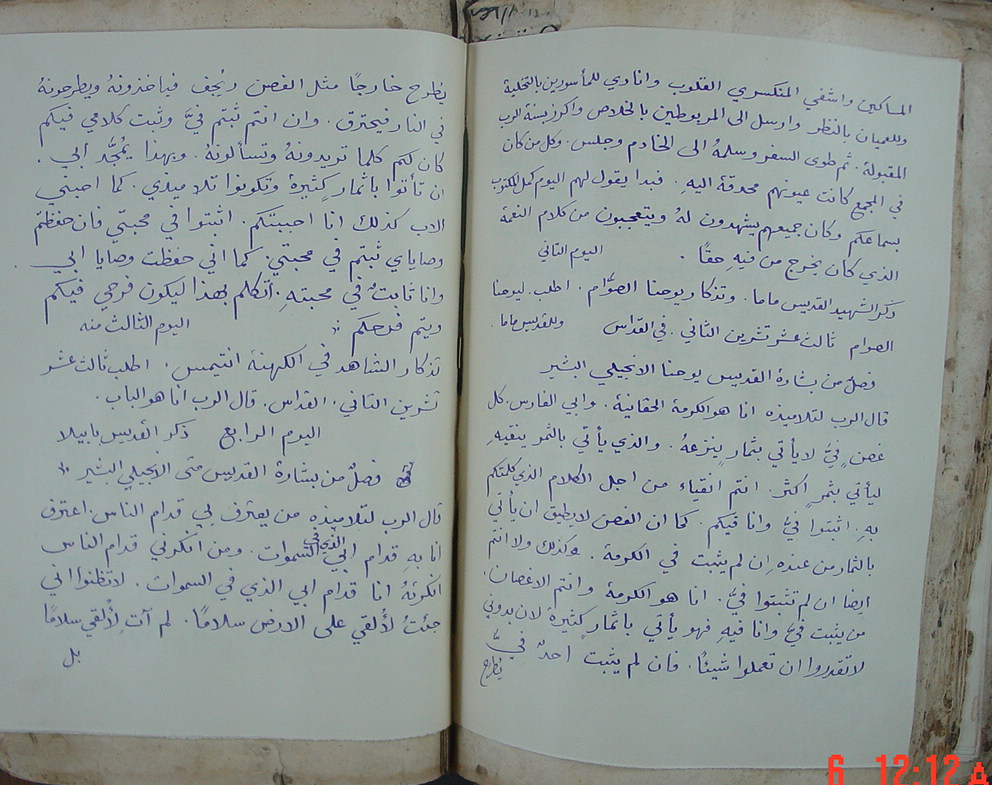 المساكين واشفي المنكسري القلوب وانادي للمأسورين بالتخلية
وللعميان بالنظر وارسل الى المربوطين بالخلاص واكرز بسنة الرب
المقبولة. ثم طوى السفر وسلمهُ الى الخادم وجلس. وكل من كان
في المجمع كانت عيونهم محدقة اليهِ. فبدا يقول لهم اليوم كمل المكتوب
بسماعكم وكان جميعهم يشهدون لهُ ويتعجبون من كلام النعمة
الذي كان يخرج من فيهِ حقًا. اليوم الثاني
ذكر الشهيد القديس ماما. وتذكار يوحنا الصوَّام. اطلب. ليوحنا
الصوام ثالث عشر تشرين الثاني. في القداس وللقديس ماما.
فصلٌ من بشارة القديس يوحنا الانجيلي البشير
قال الرب لتلاميذه انا هو الكرمة الحقانية. وابي الفارس. كل
غصن فيَّ لا يأتي بثمارٍ ينزعهُ. والذي يأتي بالثمر ينقيهِ
ليأتي بثمرٍ اكثر. انتم انقياء من اجل الكلام الذي كلمتكم
بهِ. اثبتوا فيَّ وانا فيكم. كما ان الغصن لا يطيق ان يأتي
بالثمار من عندهِ ان لم يثبت في الكرمة. وكذلك ولا انتم
ايضا ان لم تثبتوا فيَّ. انا هو الكرمة وانتم الاغصان.
من يثبت فيَّ وانا فيهِ فهو يأتي باثمارٍ كثيرة لان بدوني
لا تقدروا ان تعملوا شيئًا. فان لم يثبت احدٌ فيَّ
يُطرح
يُطرح خارجًا مثل الغصن ويُجف فياخذونهُ ويطرحونهُ
في النار فيحترق. وان انتم ثبتم فيَّ وثبت كلامي فيكم
كان لكم كلما تريدونهُ وتسألونهُ. وبهذا يُمجَّد ابي.
ان تأتوا باثمارٍ كثيرة وتكونوا تلاميذي. كما احبني
الاب كذلك انا احببتكم. اثبتوا في محبتي فان حفظتم
وصاياي ثبتم في محبتي. كما اني حفظت وصايا ابي
وانا ثابتٌ في محبتهِ. اتكلم بهذا ليكون فرحي فيكم
ويتم فرحكم اليوم الثالث منه
تذكار الشاهد في الكهنة انتيمس. اطلب ثالث عشر
تشرين الثاني. القداس. قال الرب انا هو الباب.
اليوم الرابع ذكر القديس بابيلا
فصلٌ من بشارة القديس متى الانجيلي البشير
قال الرب لتلاميذه من يعترف بي قدام الناس. اعترف
انا بهِ قدام ابي الذي في السموات. ومن انكرني قدام الناس
انكرتهُ انا قدام ابي الذي في السموات. لا تظنوا اني
جئتُ لأُلقي على الارض سلامًا. لم آتِ لأُلقي سلامًا
بل
6 12:12 A